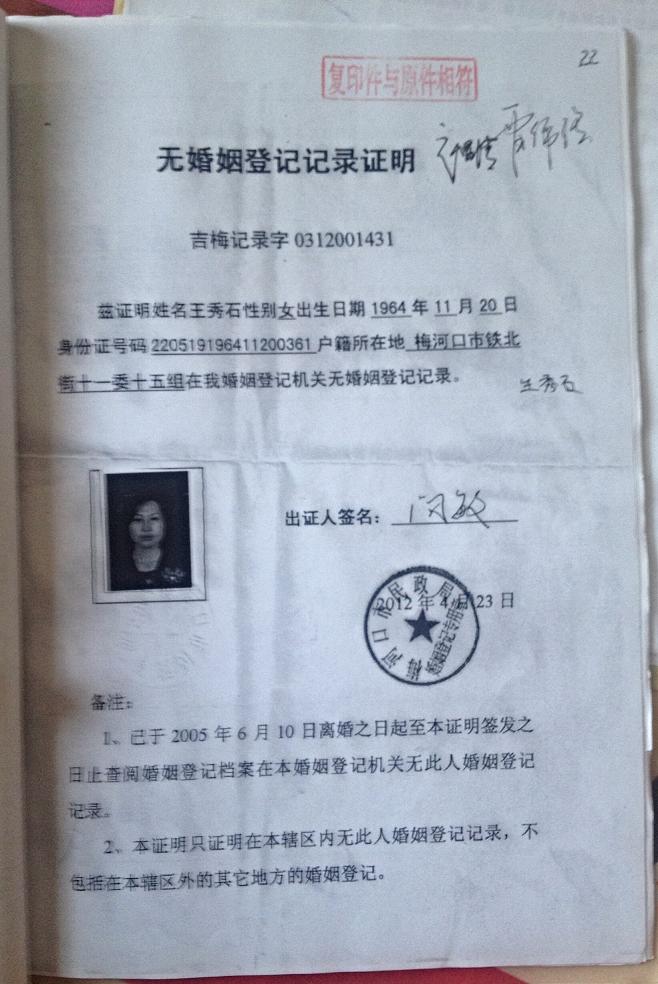 22
复印件与原件相符
无婚姻登记记录证明
吉梅记录字 0312001431
兹证明姓名王秀石性别女出生日期 1964 年 11 月 20 日
身份证号码 220519196411200361 户籍所在地 梅河口市铁北
街十一委十五组在我婚姻登记机关无婚姻登记记录。
王秀石
出证人签名: 闪敏
2012 年 4 月 23 日
梅河口市民政局
婚姻登记专用章
备注:
1、已于 2005 年 6 月 10 日离婚之日起至本证明签发之
日止查阅婚姻登记档案在本婚姻登记机关无此人婚姻登记
记录。
2、本证明只证明在本辖区内无此人婚姻登记记录，不
包括在本辖区外的其它地方的婚姻登记。